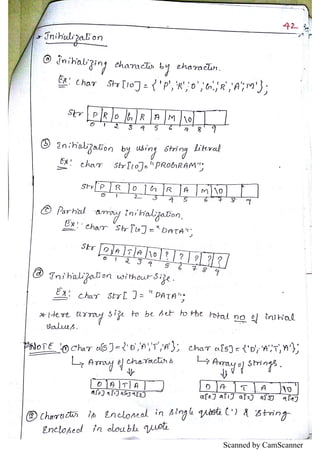 42
* Initialization
(a) Initializing character by character.
Ex: char Str[10] = {'P','R','O','G','R','A','M'};
Str P R O G R A M \0
0 1 2 3 4 5 6 7 8 9
(b) Initialization by using string literal
Ex: char Str[10]="PROGRAM";
Str P R O G R A M \0
0 1 2 3 4 5 6 7 8 9
(c) Partial array Initialization.
Ex:- char Str[10]="DATA";
Str D A T A \0 ? ? ? ? ?
0 1 2 3 4 5 6 7 8 9
(d) Initialization without Size.
Ex: char Str[ ] = "DATA";
* Here array size to be set to the total no of initial
values.
NOTE: (A) char a[5]={'D','A','T','A'}; char a[5]={'D','A','T','A'};
↳ Array of characters ↳ Array of Strings.
D A T A D A T A \0
a[0] a[1] a[2] a[3] a[0] a[1] a[2] a[3] a[4]
(B) Character is Enclosed in Single quote (') & String
Enclosed in double quote
Scanned by CamScanner